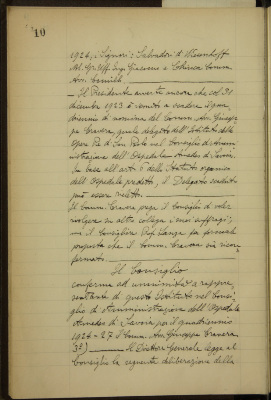 10
1924, i Signori: Salvadori di Wiesenhoff
Avv. Camillo.
— Il Presidente avverte ancora che col 31
dicembre 1923 è venuto a scadere il qua-
driennio di nomina del Comm. Avv. Giusep-
pe Cravera, quale delegato dell'Istituto delle
Opere Pie di San Paolo nel Consiglio di Ammi-
nistrazione dell'Ospedale Amedeo di Savoia.
In base all'art. 8 dello Statuto organico
dell'Ospedale predetto, il Delegato scaduto
può essere rieletto.
Il Comm. Cravera prega il Consiglio di voler
rivolgere su altro collega i suoi suffragi;
ma il Consigliere Prof. fa formale
proposta che il Comm. Cravera sia ricon-
fermato.
Il Consiglio
conferma ad unanimità a rappre-
sentante di questo Istituto nel Consi-
glio di Amministrazione dell'Ospedale
Amedeo di Savoia, per il quadriennio
1924-27 il Comm. Avv. Giuseppe Cravera
3°) — Il Direttore Generale legge al
Consiglio la seguente deliberazione della